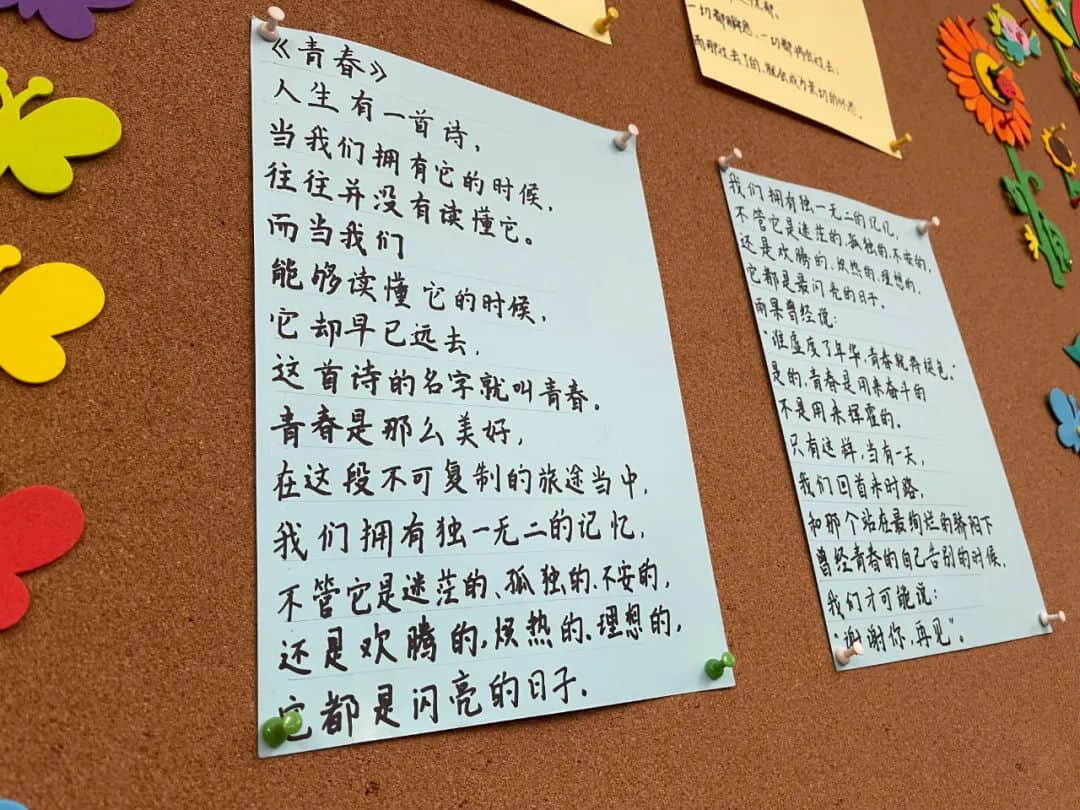 《青春》
人生有一首诗，
当我们拥有它的时候，
往往并没有读懂它。
而当我们
能够读懂它的时候，
它却早已远去，
这首诗的名字就叫青春。
青春是那么美好，
在这段不可复制的旅途当中，
我们拥有独一无二的记忆，
不管它是迷茫的、孤独的、不安的，
还是欢腾的，炽热的、理想的，
它都是最闪亮的日子。
一切都瞬息，一切都将会过去；
而那过去了的，就会成为亲切的怀恋。
我们拥有独一无二的记忆，
不管它是迷茫的、孤独的、不安的，
还是欢腾的、炽热的、理想的，
它都是最闪亮的日子。
雨果曾经说：
“谁虚度了年华，青春就将褪色。”
是的，青春是用来奋斗的
不是用来挥霍的。
只有这样，当有一天，
我们回首来时路，
和那个站在最绚烂的骄阳下
曾经青春的自己告别的时候，
我们才可能说：
“谢谢你，再见”。